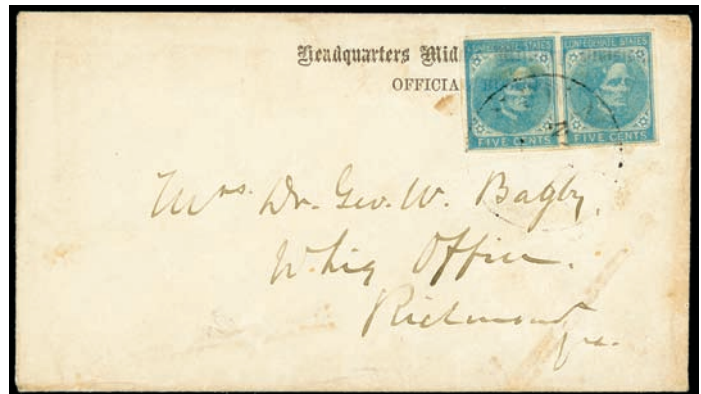 Headquarters Mid
OFFICIA
CONFEDERATE STATES CONFEDERATE STATES
FIVE CENTS FIVE CENTS
Mrs. Dr. Geo. W. Bagby,
Whig Office.
Richmond
Va.